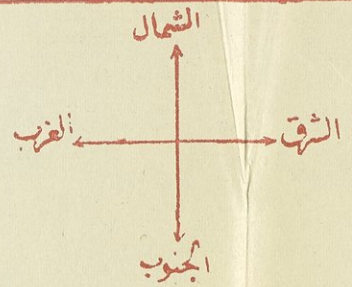 الشمال
الشرق
الغرب
الجنوب